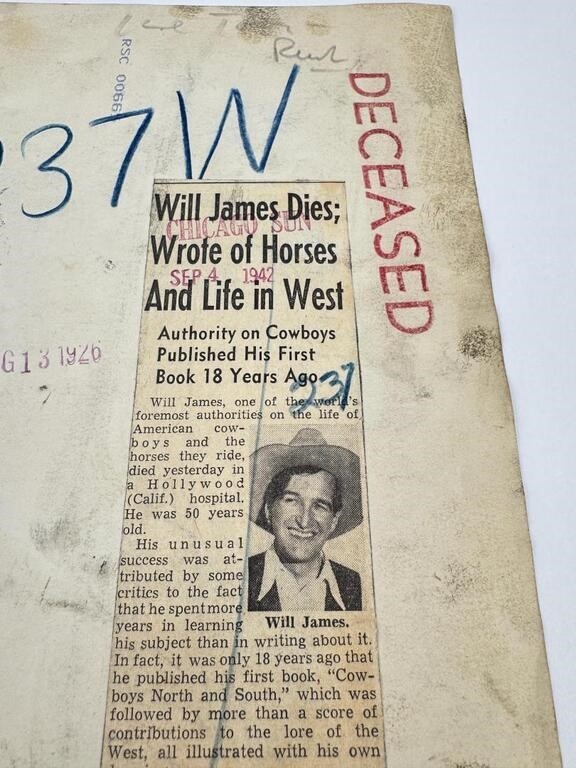 RSC 0066
37W
DECEASED
Will James Dies;
CHICAGO SUN
Wrote of Horses
SEP 4 1942
And Life in West
Authority on Cowboys
Published His First
Book 18 Years Ago
237
G 13 1926
Will James, one of the world's
foremost authorities on the life of
American cow-
boys and the
horses they ride,
died yesterday in
a Hollywood
(Calif.) hospital.
He was 50 years
old.
His unusual
success was at-
tributed by some
critics to the fact
that he spent more
years in learning
Will James.
his subject than in writing about it.
In fact, it was only 18 years ago that
he published his first book, "Cow-
boys North and South," which was
followed by more than a score of
contributions to the lore of the
West, all illustrated with his own